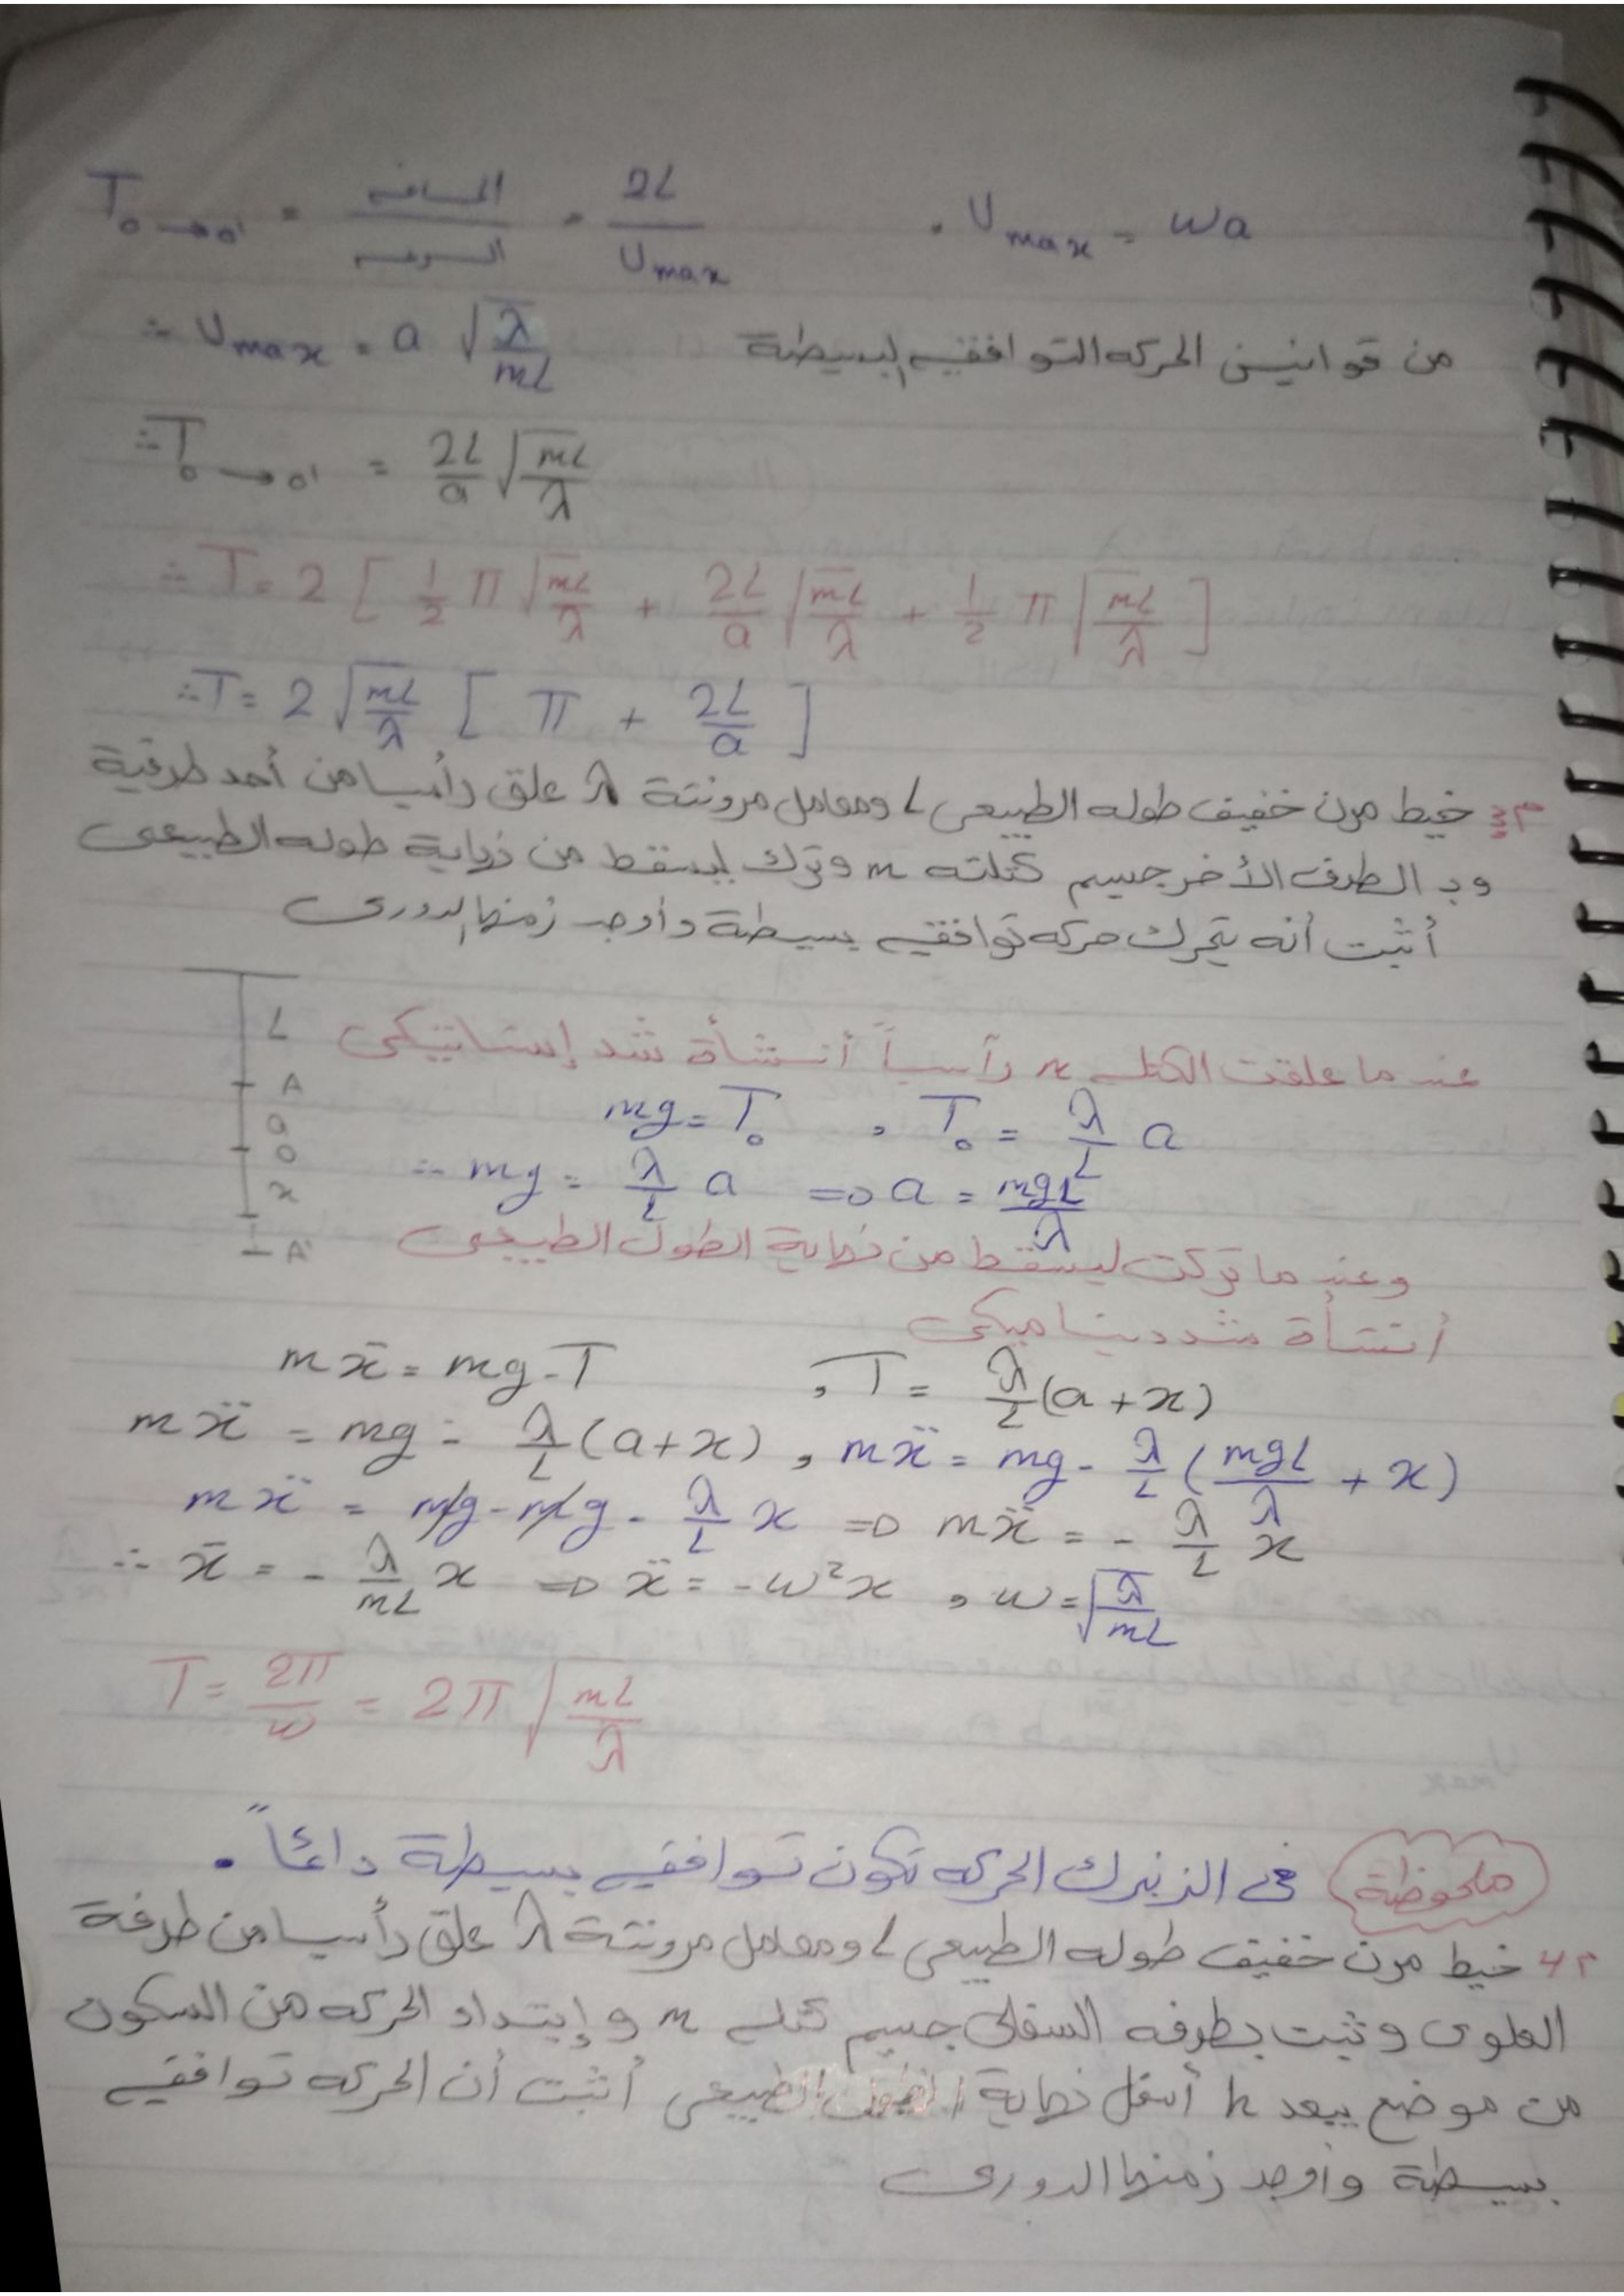 T₀→₀' = المسافه / السرعه = 2L / Umax , Umax = wa
∴ Umax = a √(λ/mL) من قوانين الحركه التوافقيه البسيطة
∴ T₀→₀' = 2L/a √(mL/λ)
∴ T = 2 [ 1/2 π √(mL/λ) + 2L/a √(mL/λ) + 1/2 π √(mL/λ) ]
∴ T = 2 √(mL/λ) [ π + 2L/a ]
م3 خيط مرن خفيف طوله الطبيعى L ومعامل مرونتة λ علق رأسيا من أحد طرفية
وبـ الطرف الأخر جسيم كتلته m وترك ليسقط من نهاية طوله الطبيعى
أثبت أنه يتحرك حركه توافقيه بسيطة وأوجد زمنها الدورى
L
A
a
o
x
A'
عندما علقت الكتله m رآسياً أنشأة شد إستاتيكى
mg = T₀ , T₀ = λ/L a
∴ mg = λ/L a ⇒ a = mgL/λ
وعندما تركت ليسقط من نهاية الطول الطبيعى
أنشأة شد ديناميكى
mẍ = mg - T , T = λ/L (a + x)
mẍ = mg - λ/L (a + x) , mẍ = mg - λ/L (mgL/λ + x)
mẍ = mg - mg - λ/L x ⇒ mẍ = - λ/L x
∴ ẍ = - λ/mL x ⇒ ẍ = -w²x , w = √(λ/mL)
T = 2π/w = 2π √(mL/λ)
ملحوظة فى الزنبرك الحركه تكون توافقيه بسيطة دائماً .
م4 خيط مرن خفيف طوله الطبيعى L ومعامل مرونتة λ علق رأسيا من طرفة
العلوى وثبت بطرفه السفلى جسيم كتله m و إبتداء الحركه من السكون
من موضع يبعد h أسفل نهاية الطول الطبيعى أثبت أن الحركه توافقيه
بسيطة وأوجد زمنها الدورى